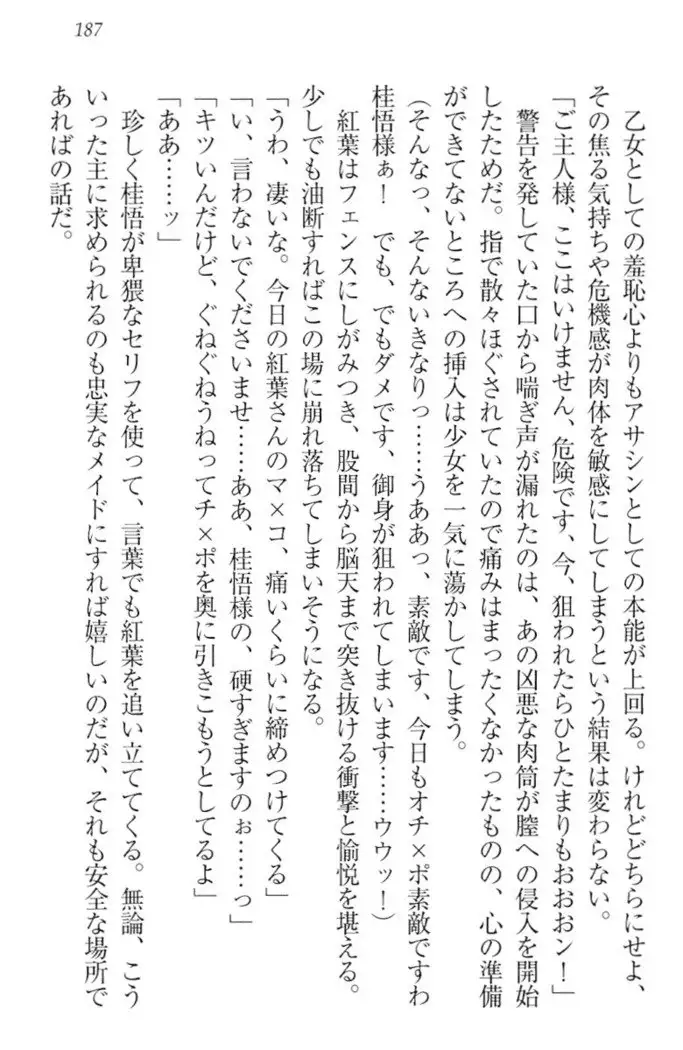 187
乙女としての羞恥心よりもアサシンとしての本能が上回る。けれどどちらにせよ、
その焦る気持ちや危機感が肉体を敏感にしてしまうという結果は変わらない。
「ご主人様、ここはいけません、危険です、今、狙われたらひとたまりもおおおン！」
警告を発していた口から喘ぎ声が漏れたのは、あの凶悪な肉筒が膣への侵入を開始
したためだ。指で散々ほぐされていたので痛みはまったくなかったものの、心の準備
ができてないところへの挿入は少女を一気に蕩かしてしまう。
（そんなっ、そんないきなりっ……うああっ、素敵です、今日もオチ×ポ素敵ですわ
桂悟様ぁ！　でも、でもダメです、御身が狙われてしまいます……ウウッ！）
紅葉はフェンスにしがみつき、股間から脳天まで突き抜ける衝撃と愉悦を堪える。
少しでも油断すればこの場に崩れ落ちてしまいそうになる。
「うわ、凄いな。今日の紅葉さんのマ×コ、痛いくらいに締めつけてくる」
「い、言わないでくださいませ……ああ、桂悟様の、硬すぎますのぉ……っ」
「キツいんだけど、ぐねぐねうねってチ×ポを奥に引きこもうとしてるよ」
「ああ……ッ」
珍しく桂悟が卑猥なセリフを使って、言葉でも紅葉を追い立ててくる。無論、こう
いった主に求められるのも忠実なメイドにすれば嬉しいのだが、それも安全な場所で
あればの話だ。